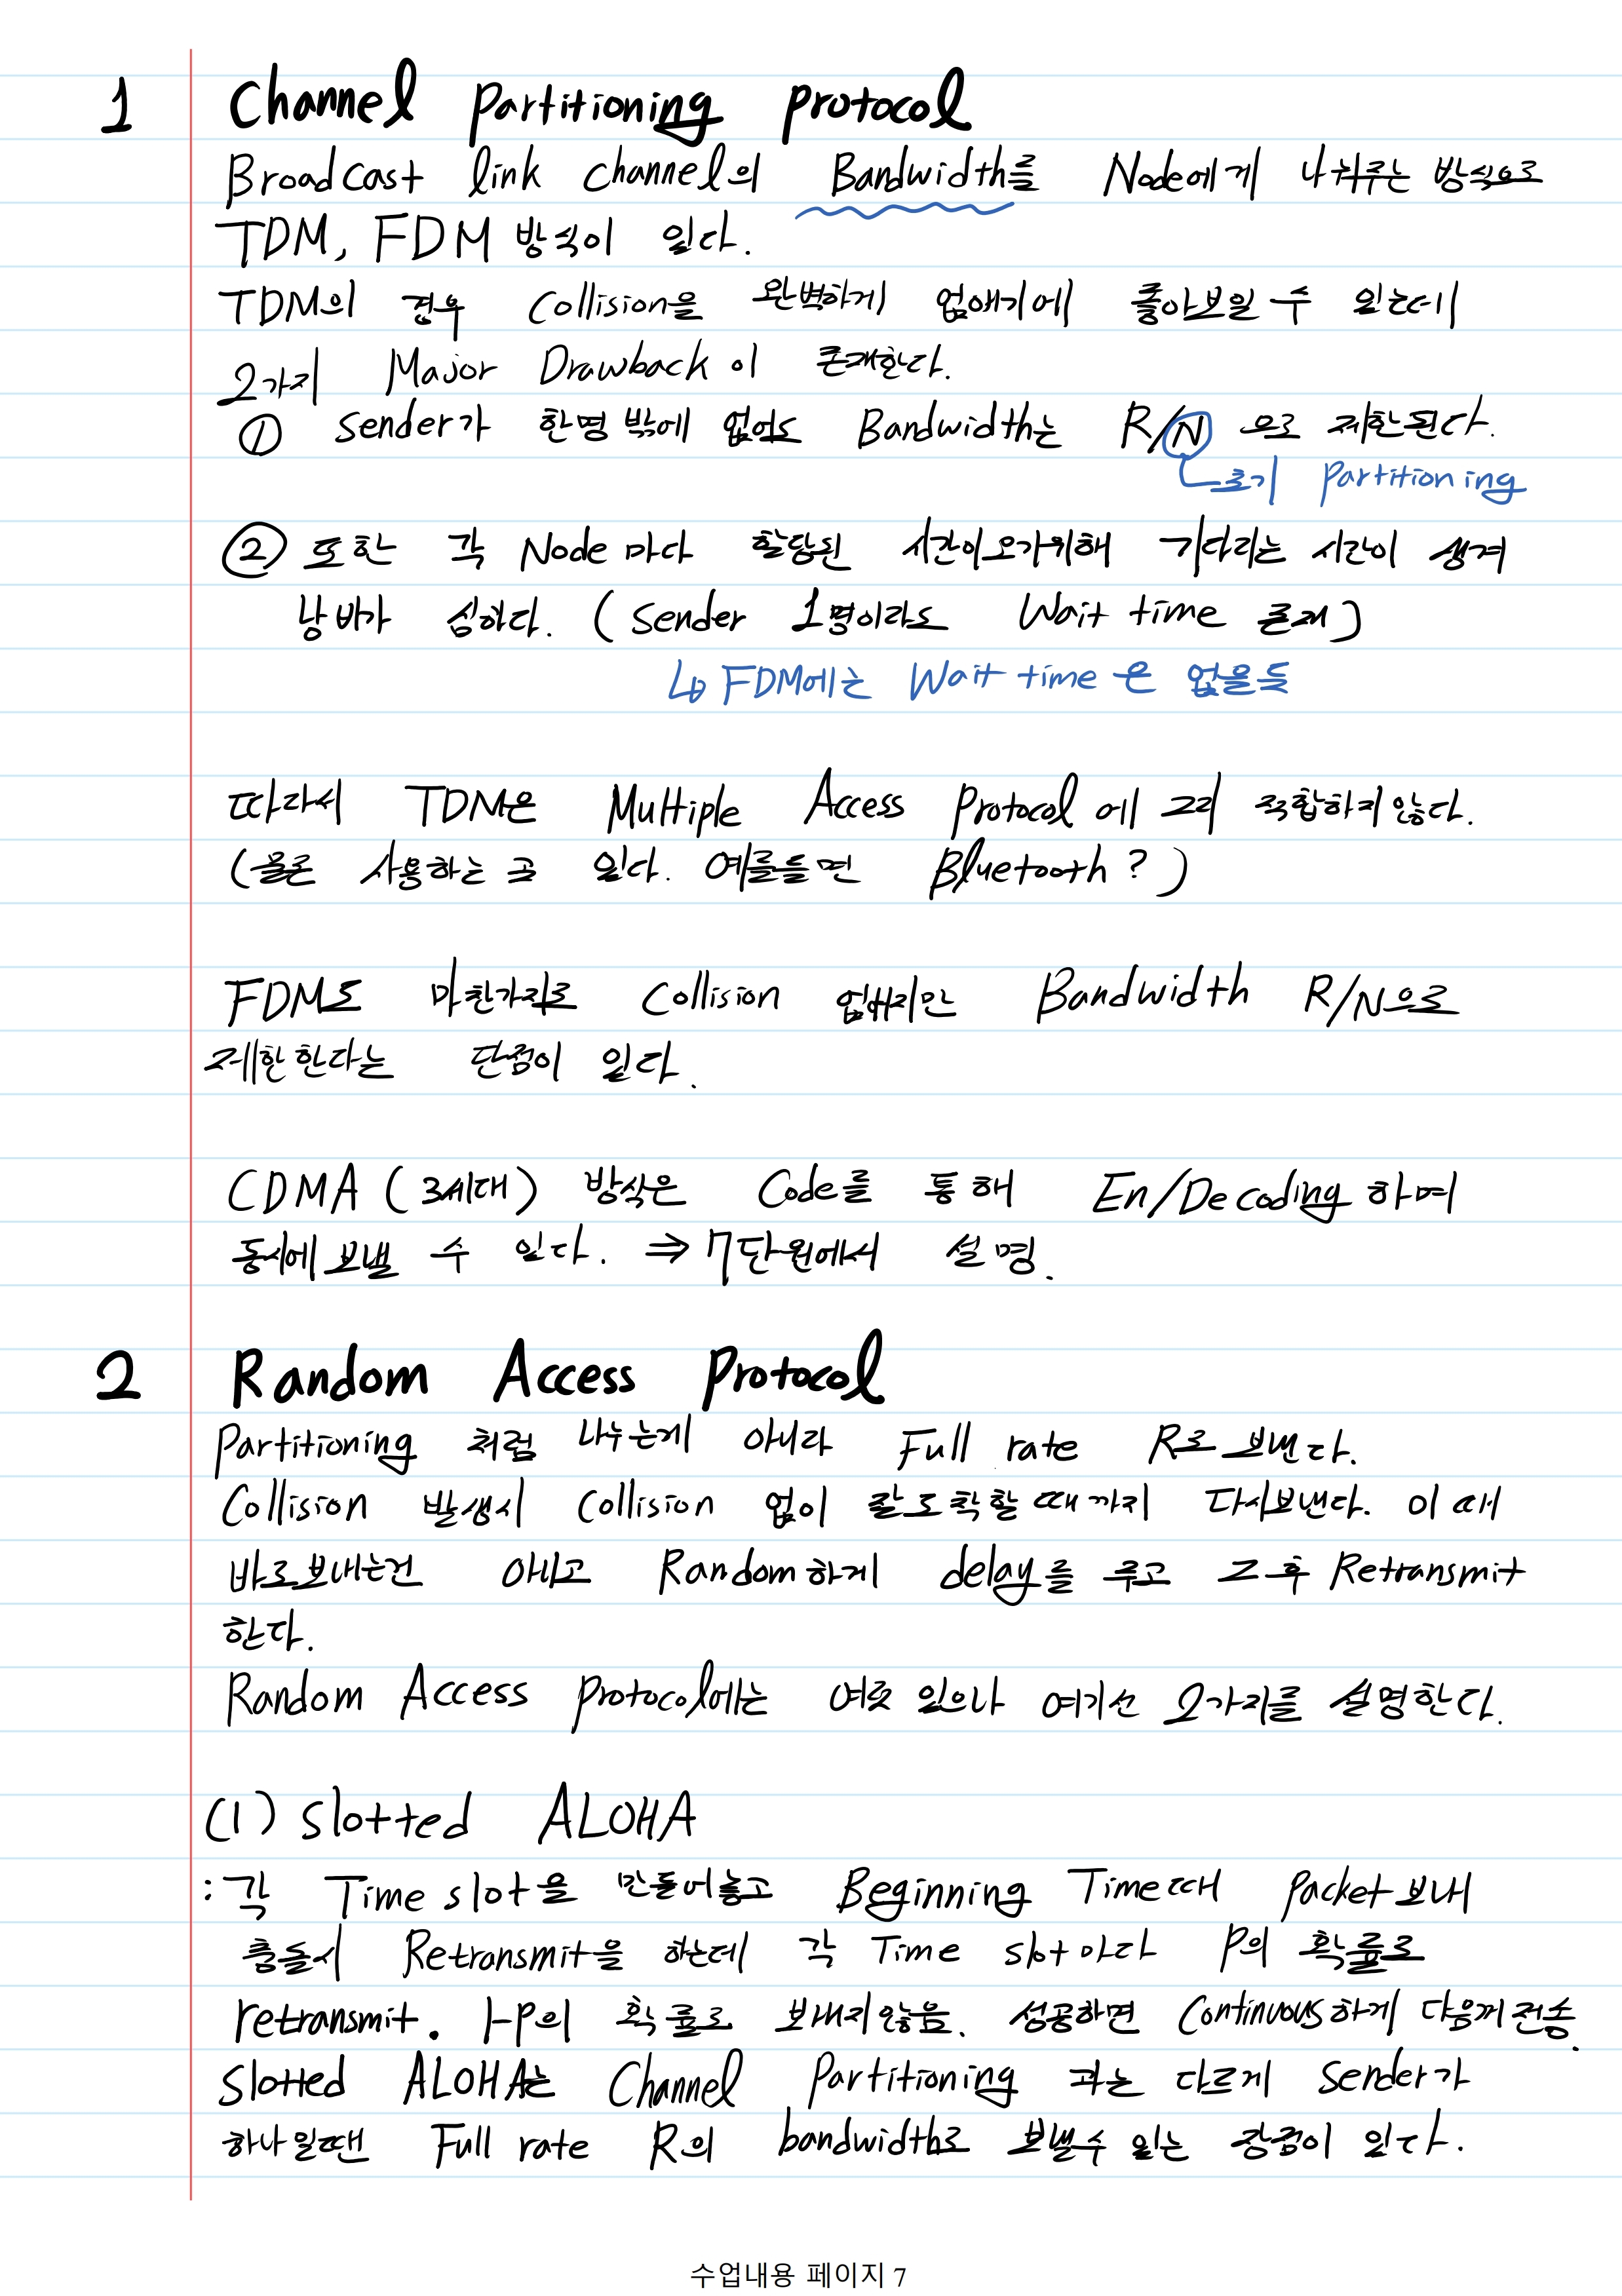 1 Channel Partitioning Protocol
Broadcast link channel의 Bandwidth를 Node에게 나눠주는 방식으로
TDM, FDM 방식이 있다.
TDM의 경우 Collision을 완벽하게 없애기에 좋아보일 수 있는데
2가지 Major Drawback이 존재한다.
① Sender가 한명 밖에 없어도 Bandwidth는 R/N으로 제한된다.
초기 Partitioning
② 또한 각 Node마다 할당된 시간이오기위해 기다리는 시간이 생겨
낭비가 심하다. (Sender 1명이라도 Wait time 존재)
↳ FDM에는 Wait time은 없을듯
따라서 TDM은 Multiple Access Protocol에 그리 적합하지않다.
(물론 사용하는 곳 있다. 예를들면 Bluetooth?)
FDM도 마찬가지로 Collision 없애지만 Bandwidth R/N으로
제한한다는 단점이 있다.
CDMA (3세대) 방식은 Code를 통해 En/Decoding하며
동시에 보낼 수 있다. ⇒ 7단원에서 설명.
2 Random Access Protocol
Partitioning 처럼 나누는게 아니라 Full rate R로 보낸다.
Collision 발생시 Collision 없이 잘 도착할때까지 다시보낸다. 이때
바로보내는건 아니고 Random하게 delay를 두고 그후 Retransmit
한다.
Random Access Protocol에는 여럿 있으나 여기선 2가지를 설명한다.
(1) Slotted ALOHA
: 각 Time slot을 만들어놓고 Beginning Time때 Packet보내
충돌시 Retransmit을 하는데 각 Time slot마다 P의 확률로
retransmit. 1-P의 확률로 보내지않음. 성공하면 Continuous하게 다음꺼전송.
Slotted ALOHA는 Channel Partitioning과는 다르게 Sender가
하나일땐 Full rate R의 bandwidth로 보낼수 있는 장점이 있다.
수업내용 페이지 7